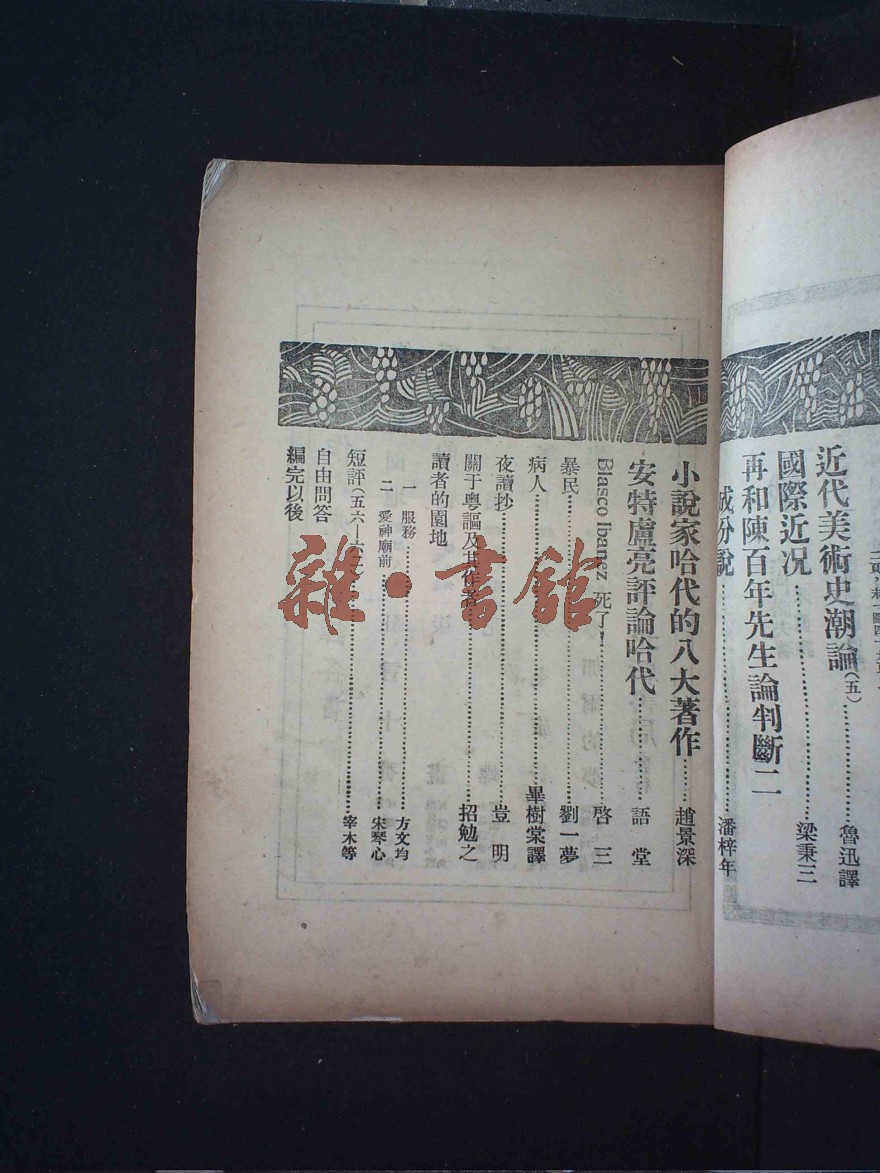 近代美術史潮論(五)………魯迅譯
國際近況………梁秉三
再和陳百年先生論判斷二
成份說………潘梓年
小說家哈代的八大著作……趙景深
安特盧亮評論哈代………語堂
Blasco Ibanez 死了!………啓三
暴民………劉一夢
病人………畢樹棠譯
夜讀抄………豈明
關于粵謳及其作者………招勉之
讀者的園地
一 服務………方文均
二 愛神廟前………宋琴心
短評………宰木等
自由問答
編完以後
雜·書館